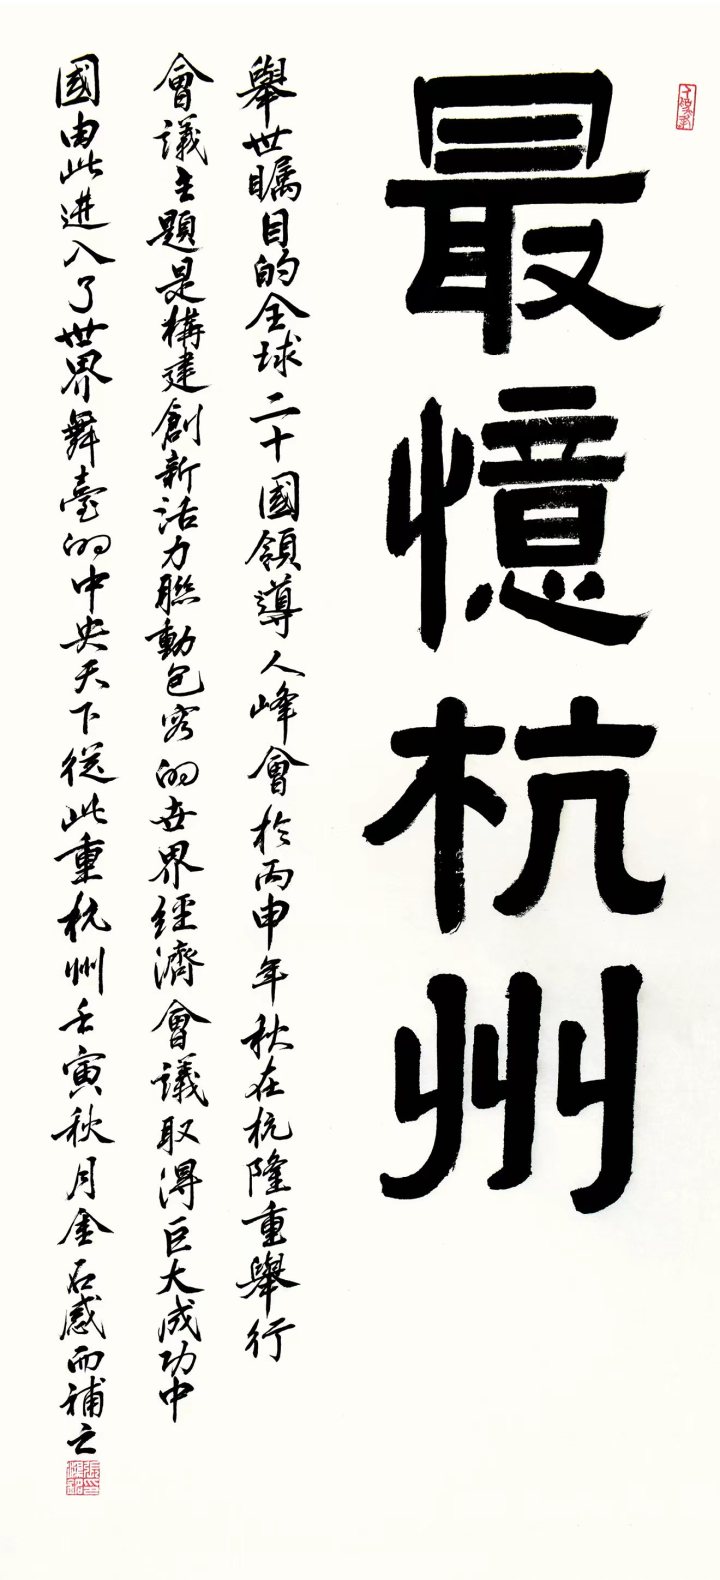 最憶杭州
舉世矚目的全球二十國領導人峰會於丙申年秋在杭隆重舉行
會議主題是構建創新活力聯動包容的世界經濟會議取得巨大成功中
國由此進入了世界舞臺的中央天下從此重杭州壬寅秋月金石感而補之